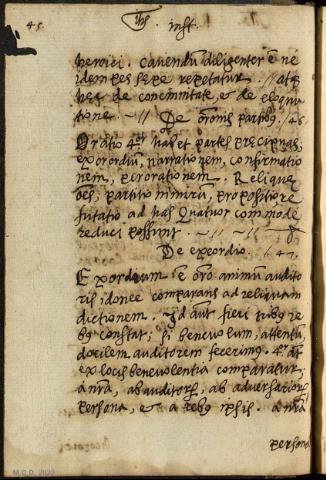 45.
inst.
heroici. cavendũ diligenter ẽ né
idem pes sepe repetatur. // atq;
hec de concinnitate, & de eloqũ
tione. ~ // De orõnis partibꝰ. /46.
Oratio 4or habet partes precipuas,
exordiũ, narrationem, confirmatio
nem, perorationem. Relique
oẽs, partitio nimirũ, propositio, re
futatio ad has quatuor commode
reduci possunt. ~ // ~ // ~ //
De exordio. /47.
Exordium ẽ orõ animum audito
ris idonee comparans ad reliquam
dictionem. Id aũt fieri tribꝰ re
bꝰ constat; si benevolum, attentũ,
docilem auditorem fecerimꝰ. 4or aũt
ex locis benevolentia comparatur;
a nrã, ab auditorũ, ab adversariorũ
persona, & a rebꝰ ipsis. a nrã
persona
M.C.D. 2022